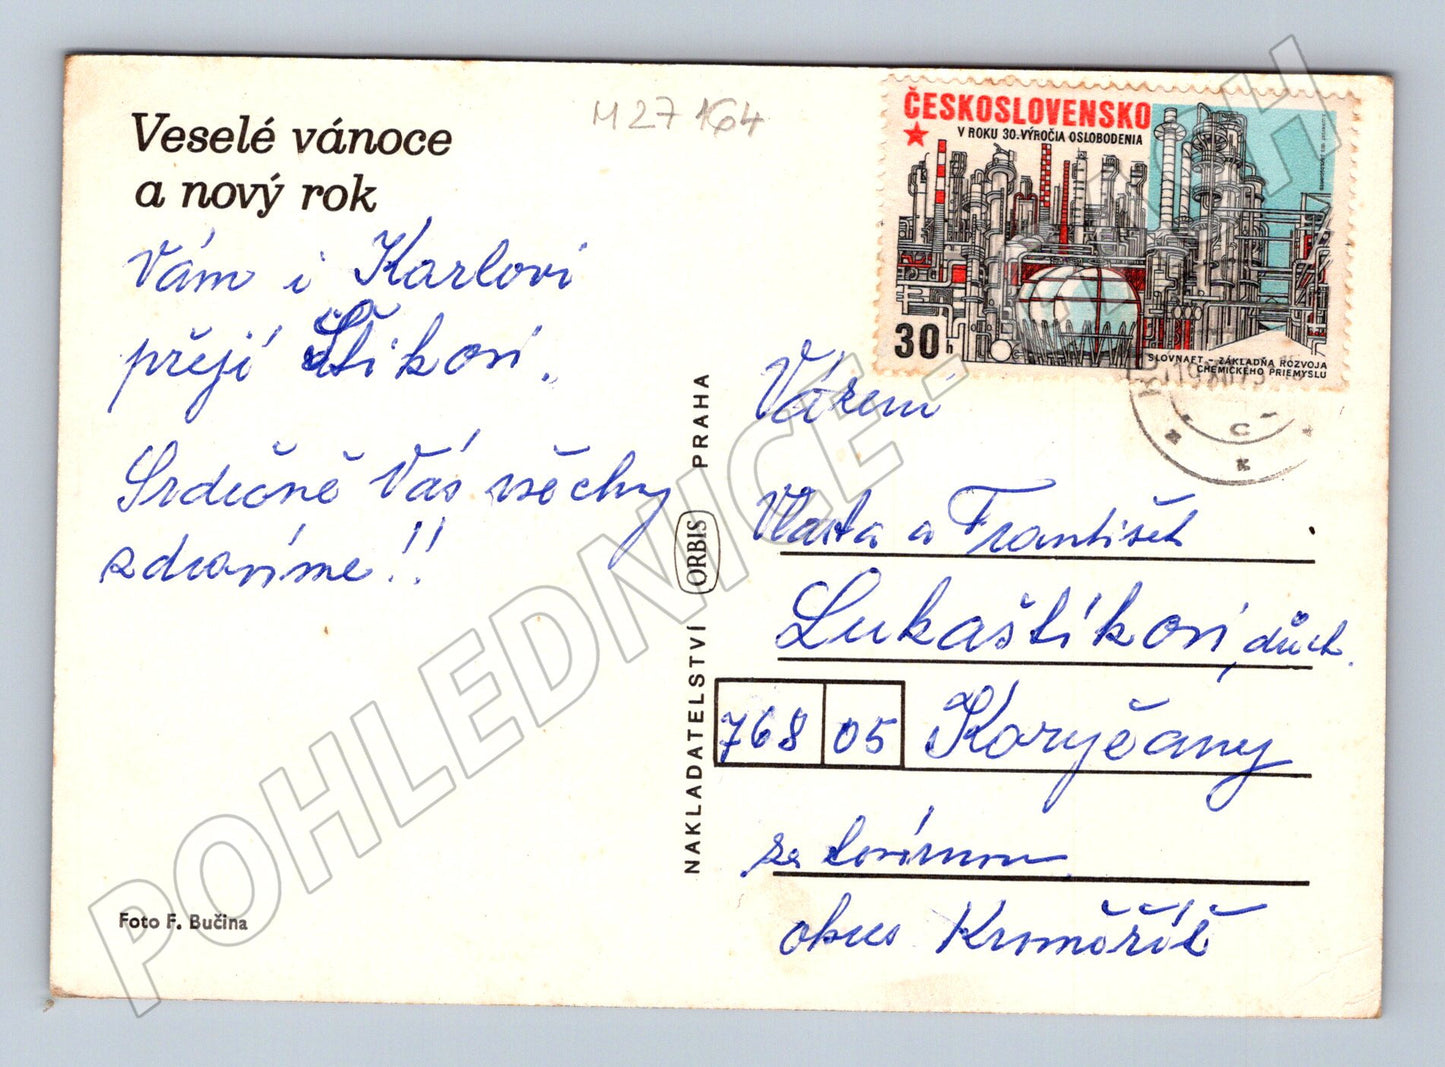 Veselé vánoce
a nový rok
Vám i Karlovi
přejí Štikovi.
Srdečně Vás všechny
zdravíme!!
Foto F. Bučina
M27164
NAKLADATELSTVÍ ORBIS PRAHA
ČESKOSLOVENSKO
V ROKU 30. VÝROČIA OSLOBODENIA
30h
SLOVNAFT - ZÁKLADŇA ROZVOJA
CHEMICKÉHO PRIEMYSLU
Vážení
Vlasta a František
Lukaštíkovi, důch.
768 05 Koryčany
za továrnou
okres Kroměříž
POHLEDNICE -